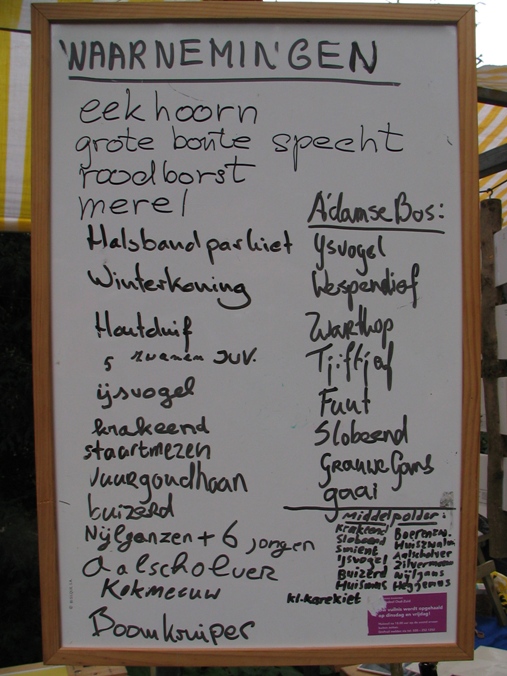 WAARNEMINGEN
eekhoorn
grote bonte specht
roodborst
merel
Halsbandparkiet
Winterkoning
Houtduif
5 zwanen JUV.
ijsvogel
krakeend
staartmezen
Vuurgoudhaan
buizerd
Nijlganzen + 6 jongen
Aalscholver
Kokmeeuw
Boomkruiper
A'damse Bos:
Ijsvogel
Wespendief
Zwartkop
Tjiftjaf
Fuut
Slobeend
Grauwe Gans
gaai
middelpolder:
Krakeend
Slobeend
Smient
Ijsvogel
Buizerd
Huismus
kl. karekiet
Boerenzw.
Huiszwalu
Aalscholver
Zilvermeeu
Nijlgans
Heggemus
vuilnis wordt opgehaald
op dinsdag en vrijdag!